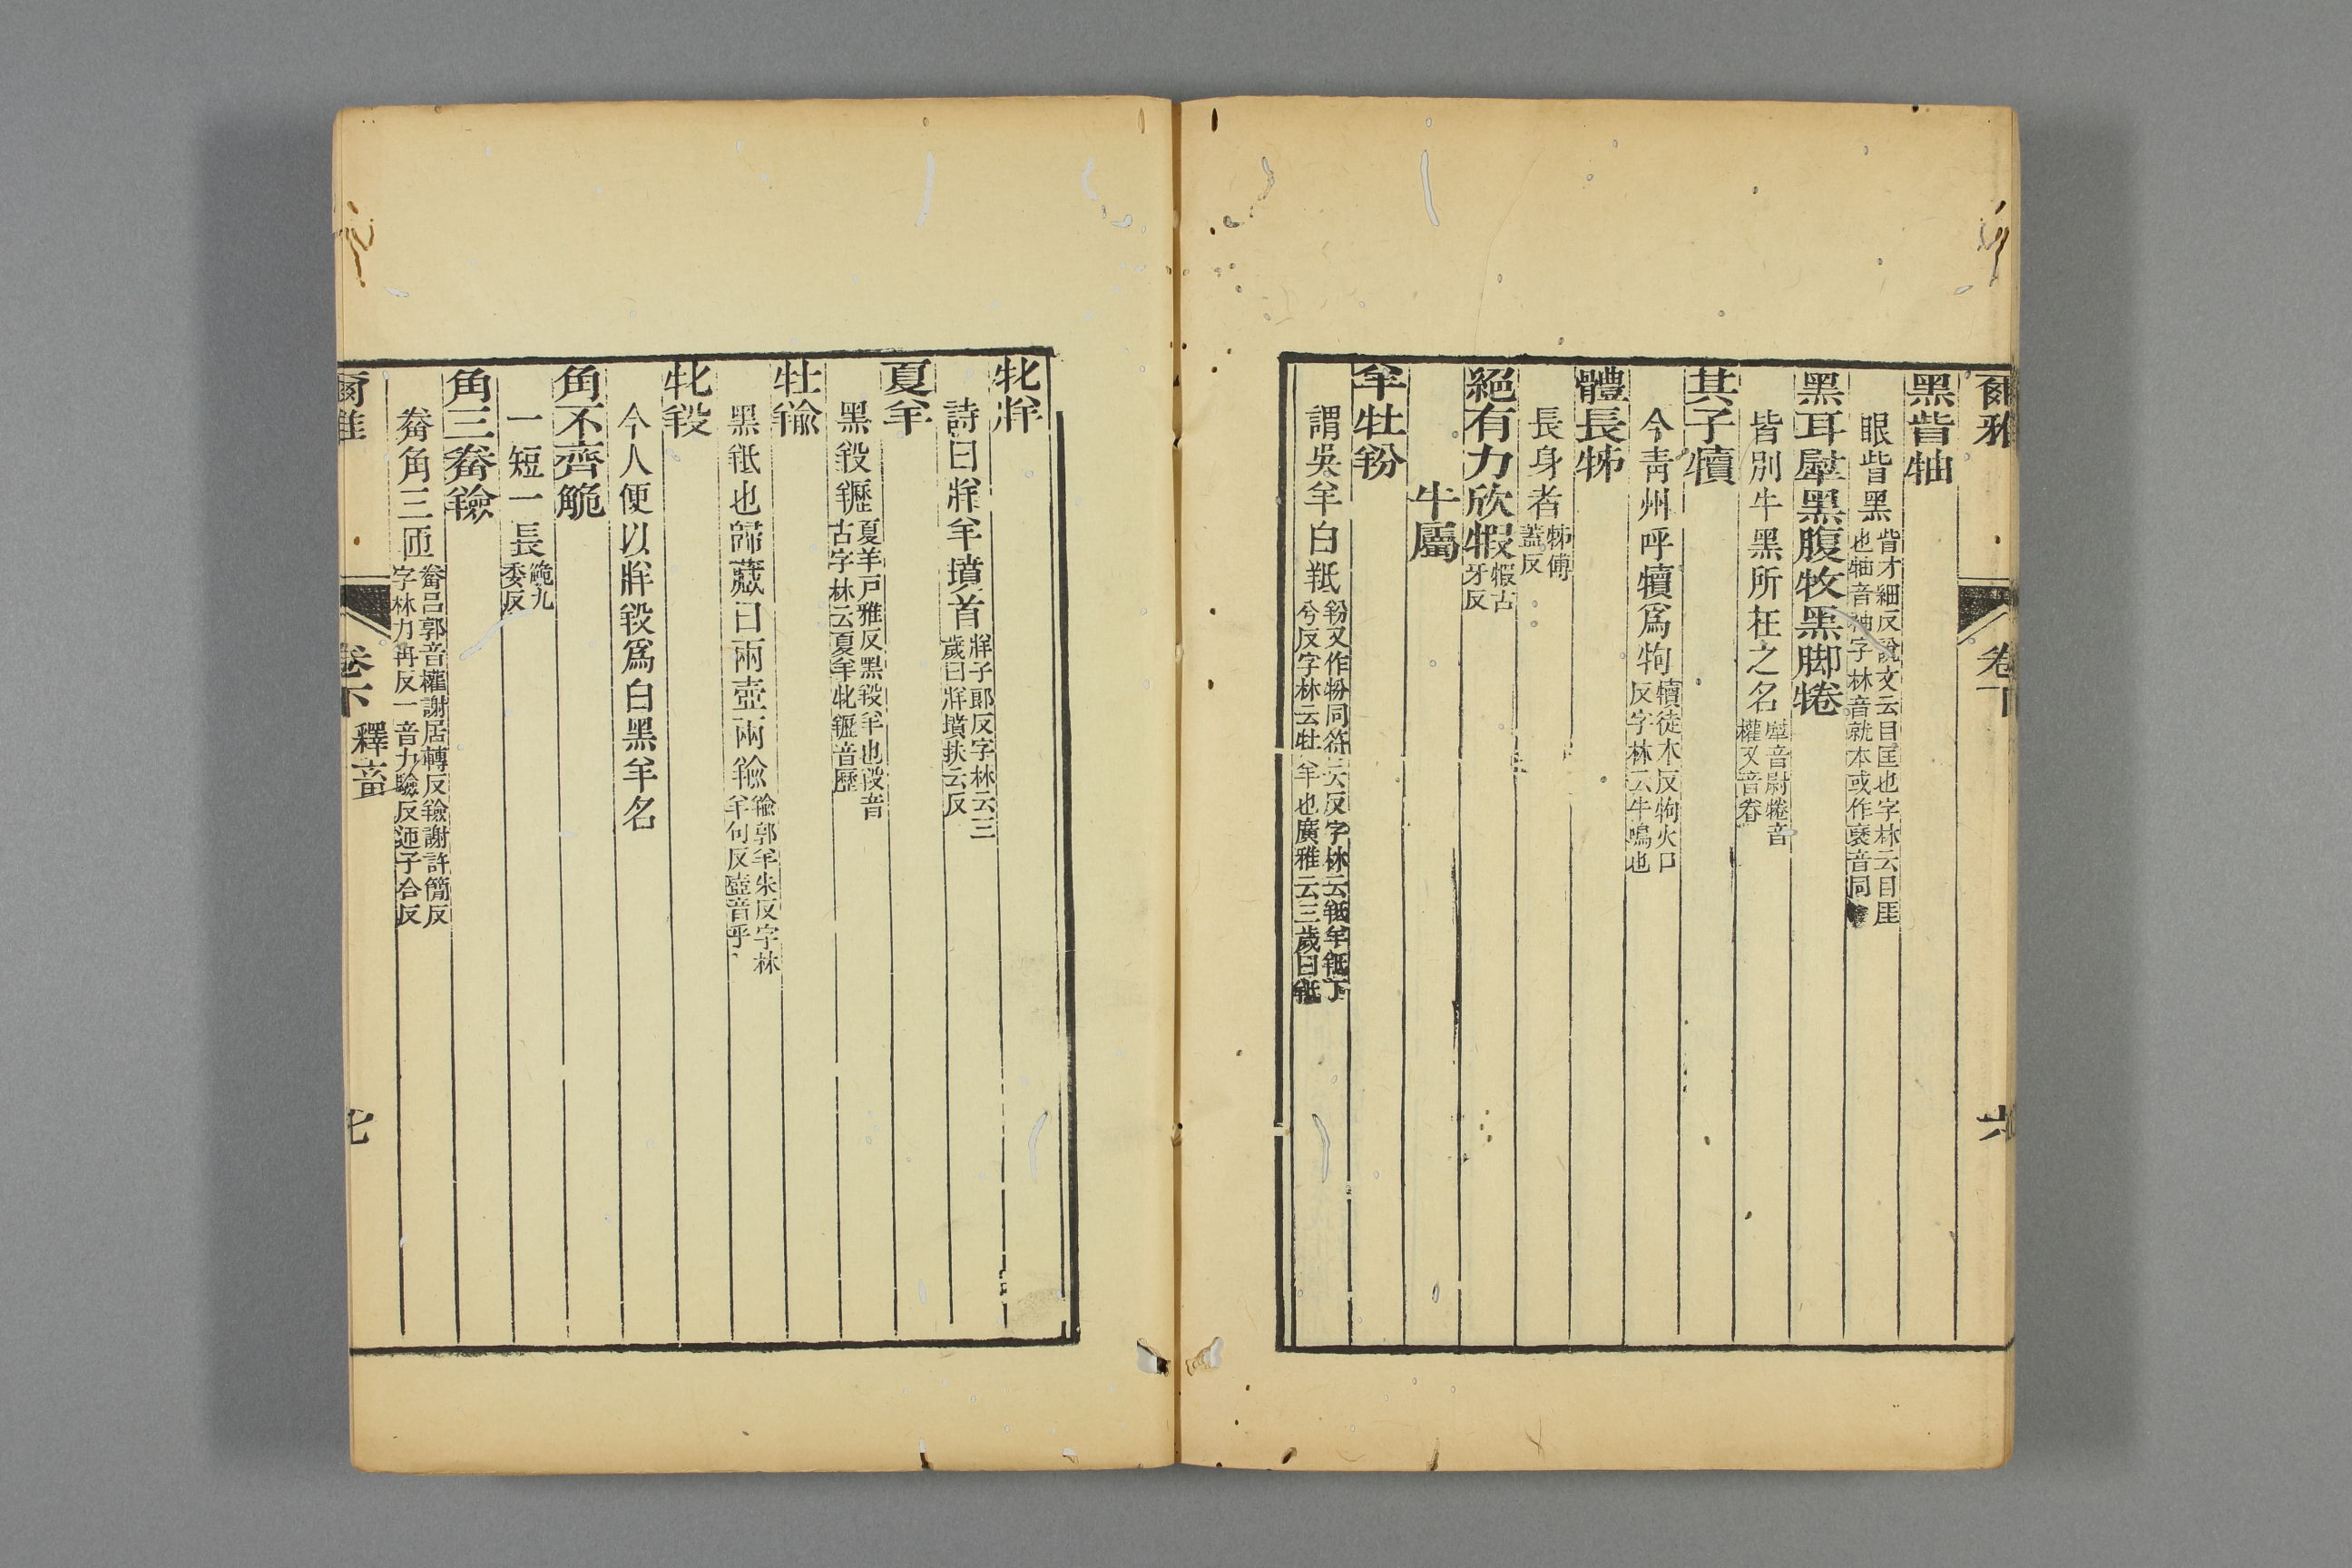 爾雅 卷下 六
黑眥牰
眼眥黑 眥才細反說文云目匡也字林云目厓
也牰音袖字林音就本或作褎音同
黑耳犚黑腹牧黑脚犈
皆別牛黑所在之名 犚音尉犈音
權又音眷
其子犢
今青州呼犢爲㸸 犢徒木反㸸火口
反字林云牛鳴也
體長牬
長身者 牬傅
蓋反
絕有力欣犌 犌古
牙反
牛屬
羊牡羒
謂吳羊白羝 羒又作粉同符云反字林云羝羊羝丁
兮反字林云牡羊也廣雅云三歲曰羝
牝牂
詩曰牂羊墳首 牂子郎反字林云三
歲曰牂墳扶云反
夏羊
黑羖䍽 夏羊戸雅反黑羖羊也羖音
古字林云夏羊牝䍽音歷
牡羭
黑羝也歸藏曰兩壺兩羭 羭郭羊朱反字林
羊句反壺音乎
牝羖
今人便以牂羖爲白黑羊名
角不齊觤
一短一長 觤九
委反
角三觠羷
觠角三匝 觠呂郭音權謝居轉反羷謝許簡反
字林力冉反一音力驗反迊子合反
爾雅 卷下 釋畜 七